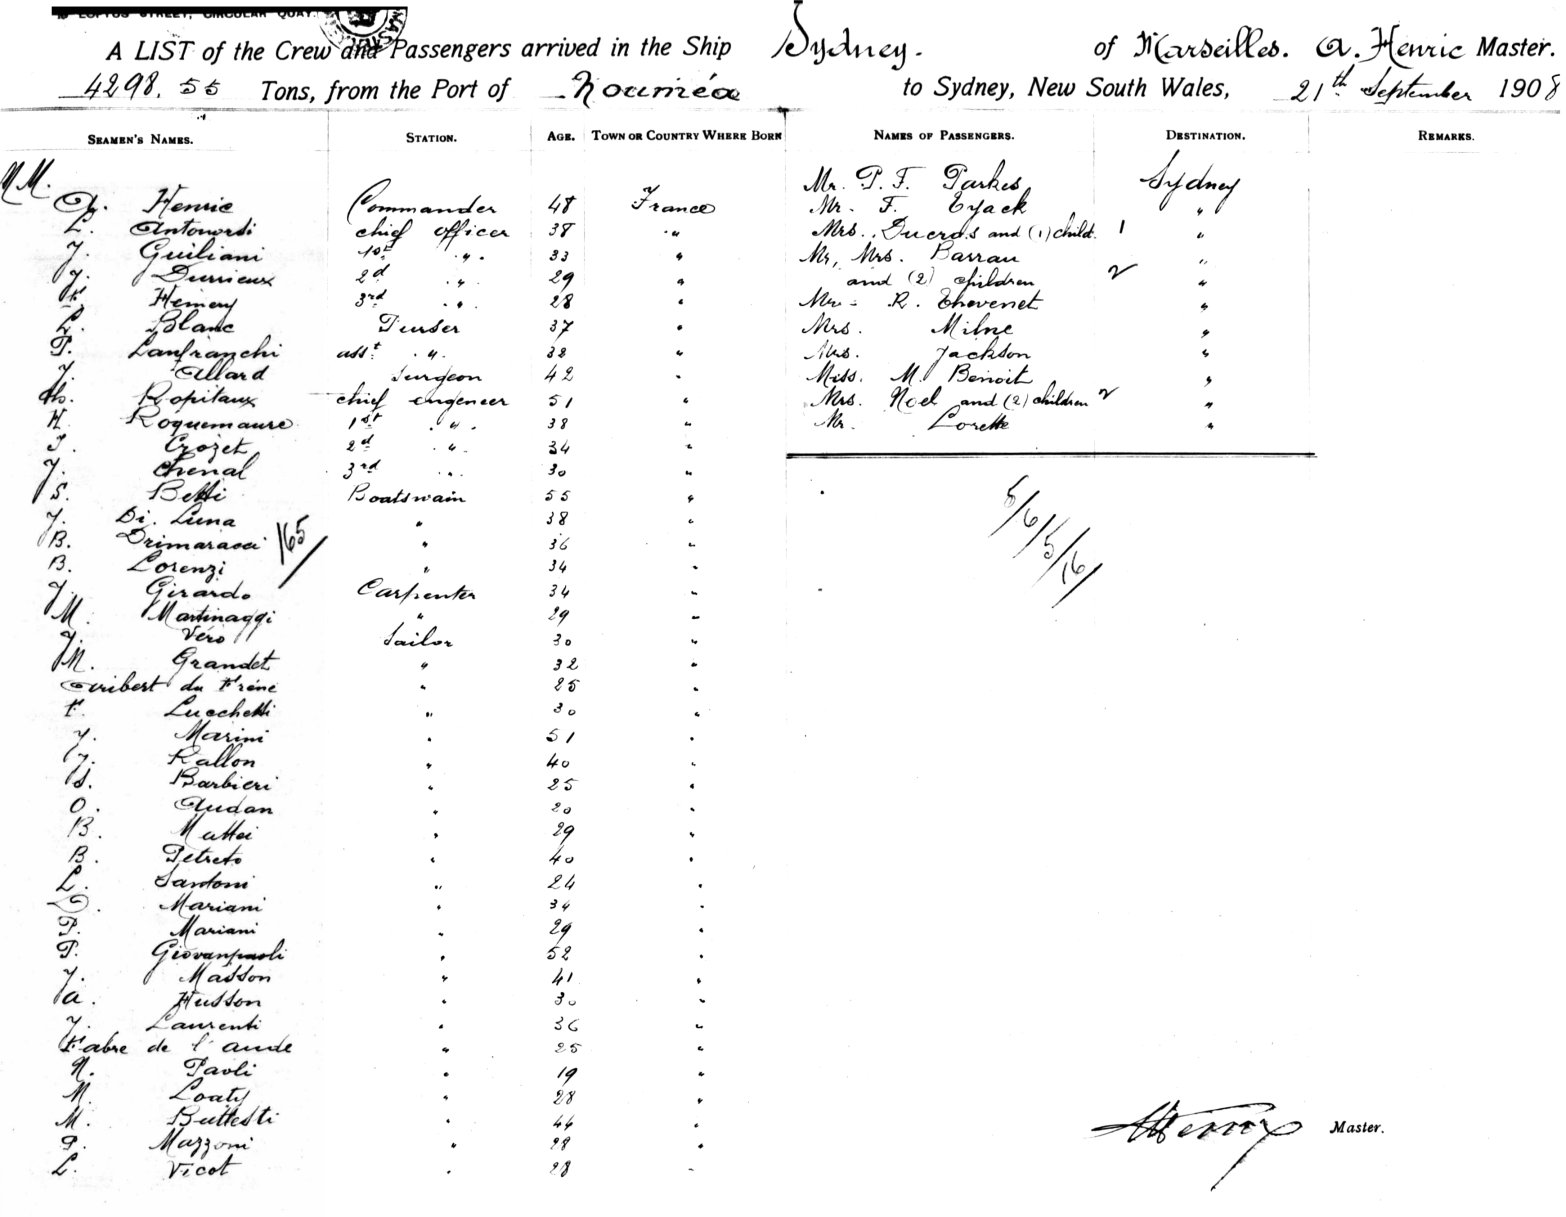 LOFTUS STREET, CIRCULAR QUAY.
A LIST of the Crew and Passengers arrived in the Ship Sydney. of Marseilles. A. Henric Master.
4298.55 Tons, from the Port of Nouméa to Sydney, New South Wales, 21th September 1908
SEAMEN'S NAMES. STATION. AGE. TOWN OR COUNTRY WHERE BORN NAMES OF PASSENGERS. DESTINATION. REMARKS.
M M.
Henric Commander 48 France
L. Antonorsi chief officer 38 "
J. Guiliani 1st " 33 "
J. Durrieux 2d " 29 "
Hemery 3rd " 28 "
L. Blanc Purser 37 "
P. Lanfranchi asst " 32 "
J. Allard Surgeon 42 "
Th. Ropitaux chief engeneer 51 "
H. Roquemaure 1st " 38 "
J. Crozet 2d " 34 "
J. Chenal 3rd " 30 "
S. Betti Boatswain 55 "
J. Di. Luna " 38 "
B. Drimaracci " 36 "
165/
B. Lorenzi " 34 "
J. Girardo Carpenter 34 "
M. Martinaggi " 29 "
J. Véro Sailor 30 "
M. Grandet " 32 "
Aribert du Frène " 25 "
F. Lucchetti " 30 "
J. Marini " 51 "
J. Rallon " 40 "
S. Barbieri " 25 "
O. Audan " 20 "
B. Mattei " 29 "
B. Petreto " 40 "
L. Santoni " 24 "
D. Mariani " 34 "
P. Mariani " 29 "
P. Giovanpaoli " 52 "
J. Masson " 41 "
A. Husson " 30 "
J. Laurenti " 36 "
Fabre de l'aude " 25 "
N. Paoli " 19 "
M. Loaty " 28 "
M. Buttesti " 44 "
P. Mazzoni " 28 "
L. Vicot " 28 "
Mr. P. F. Parkes Sydney
Mr. F. Eyack "
Mrs. Ducros and (1) child. 1 "
Mr, Mrs. Barrau "
and (2) children 2 "
Mr. R. Thevenet "
Mrs. Milne "
Mrs. Jackson "
Miss. M. Benoit "
Mrs. Noel and (2) children 2 "
Mr. Lorette "
5/6/15/16/
AHenric Master.